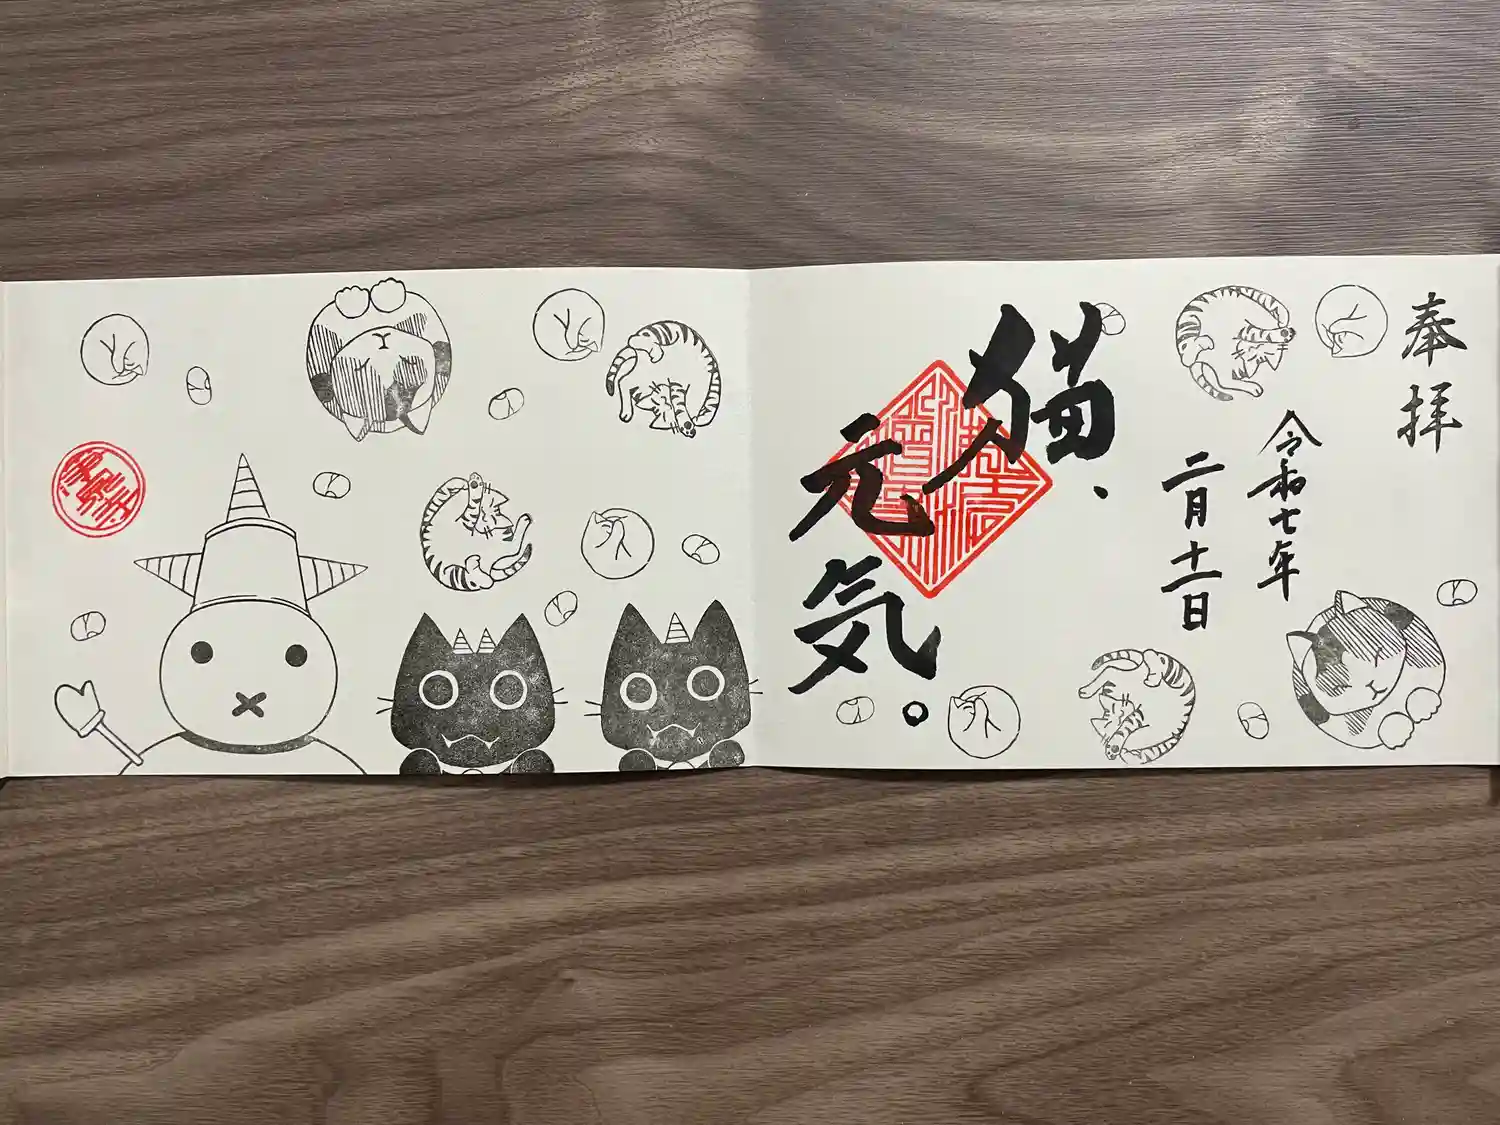 奉拝
令和七年
二月十一日
猫、
元気。